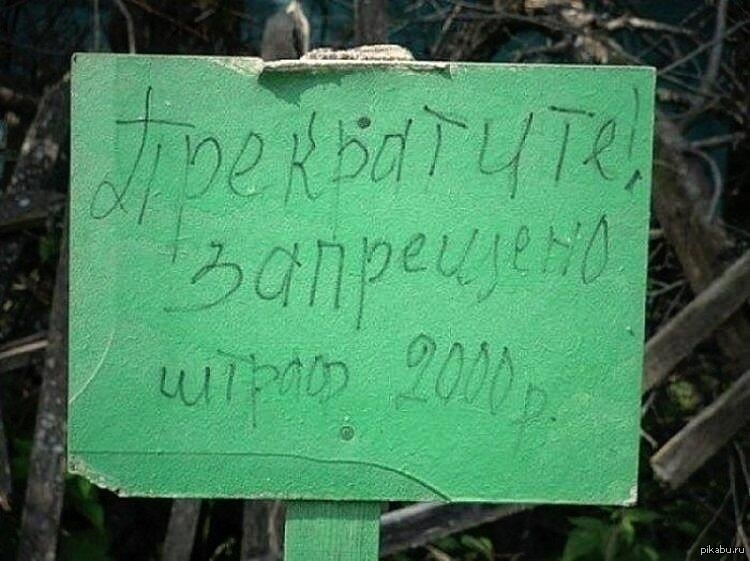 Прекратите!
запрещено
штраф 2000 р.
pikabu.ru